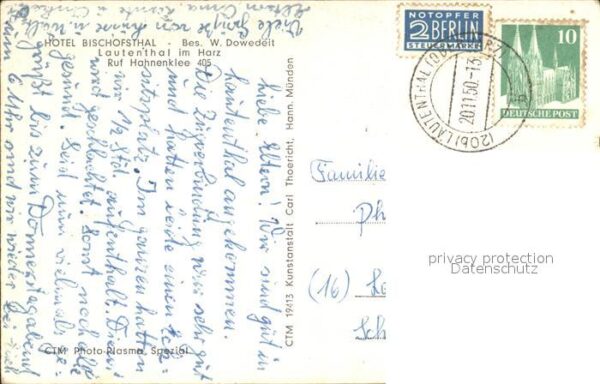 HOTEL BISCHOFSTHAL - Bes. W. Dowedeit
Lautenthal im Harz
Ruf Hahnenklee 405
NOTOPFER
2 BERLIN
STEUERMARKE
10
DEUTSCHE POST
(20b) LAUTENTHAL (OBERHARZ)
20.11.50-13
b
Liebe Eltern! Wir sind gut in
Lautenthal angekommen.
Die Zugverbindung war sehr gut
und hatten beide einen
sitzplatz. Im ganzen hatten
wir 1½ Std. aufenthalt.
und geschlachtet. Sonst noch alles
gesund. Seid nun vielmals
gegrüßt bis zum Donnerstagabend
6 Uhr sind wir wieder bei euch
Viele Grüße von
Eltern Oma
CTM 19413 Kunstanstalt Carl Thoericht, Hann. Münden
CTM Photo-Plasma Spezial
Familie
Ph
(16)
Sch
privacy protection
Datenschutz